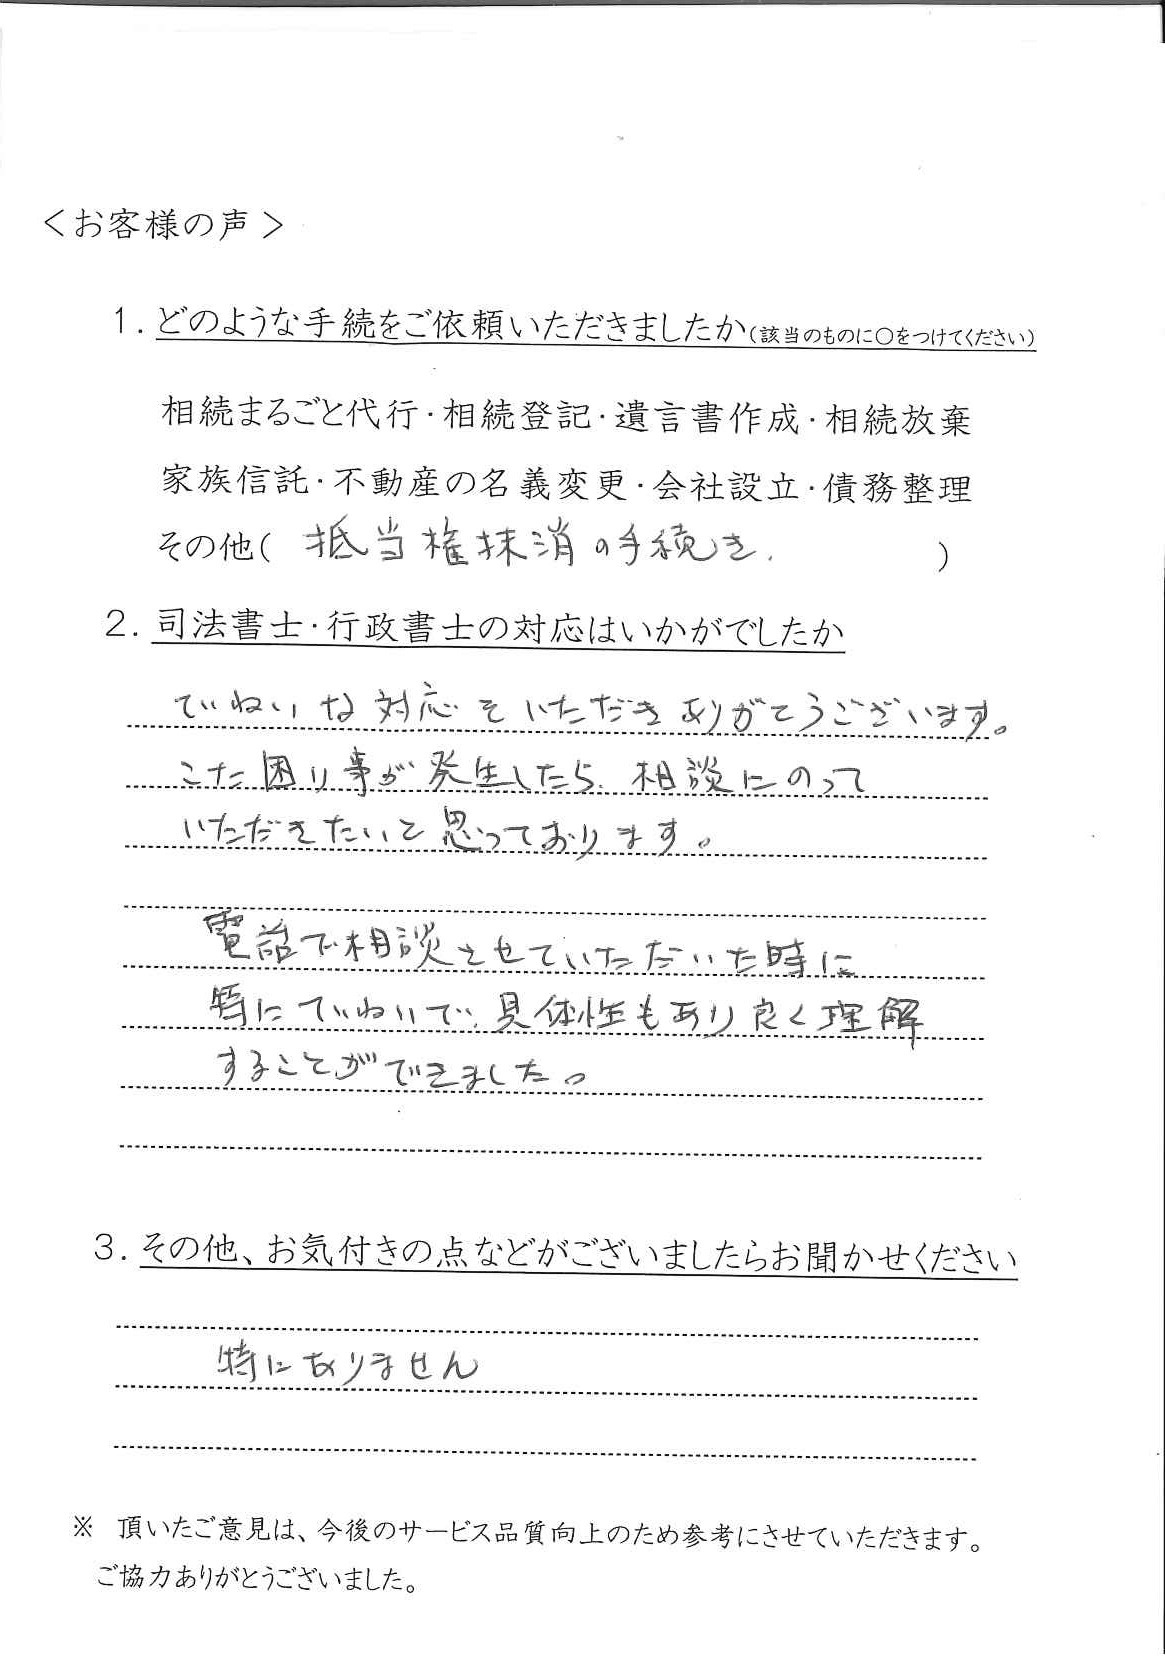 ＜お客様の声＞
1．どのような手続をご依頼いただきましたか（該当のものに〇をつけてください）
相続まるごと代行・相続登記・遺言書作成・相続放棄
家族信託・不動産の名義変更・会社設立・債務整理
その他（ 抵当権抹消の手続き. ）
2．司法書士・行政書士の対応はいかがでしたか
ていねいな対応をいただきありがとうございます。
困り事が発生したら、相談にのって
いただきたいと思っております。
電話で相談させていただいた時に
特にていねいで、具体性もあり良く理解
することができました。
3．その他、お気付きの点などがございましたらお聞かせください
特にありません
※ 頂いたご意見は、今後のサービス品質向上のため参考にさせていただきます。
ご協力ありがとうございました。